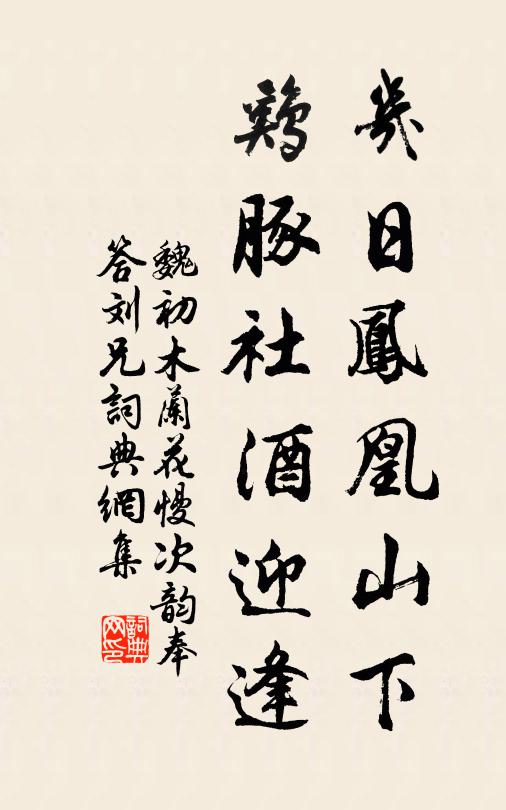 幾日鳳凰山下
鷄豚社酒迎逢
魏初木蘭花慢次韵奉
答刘兄詞典網集
詞典
网印